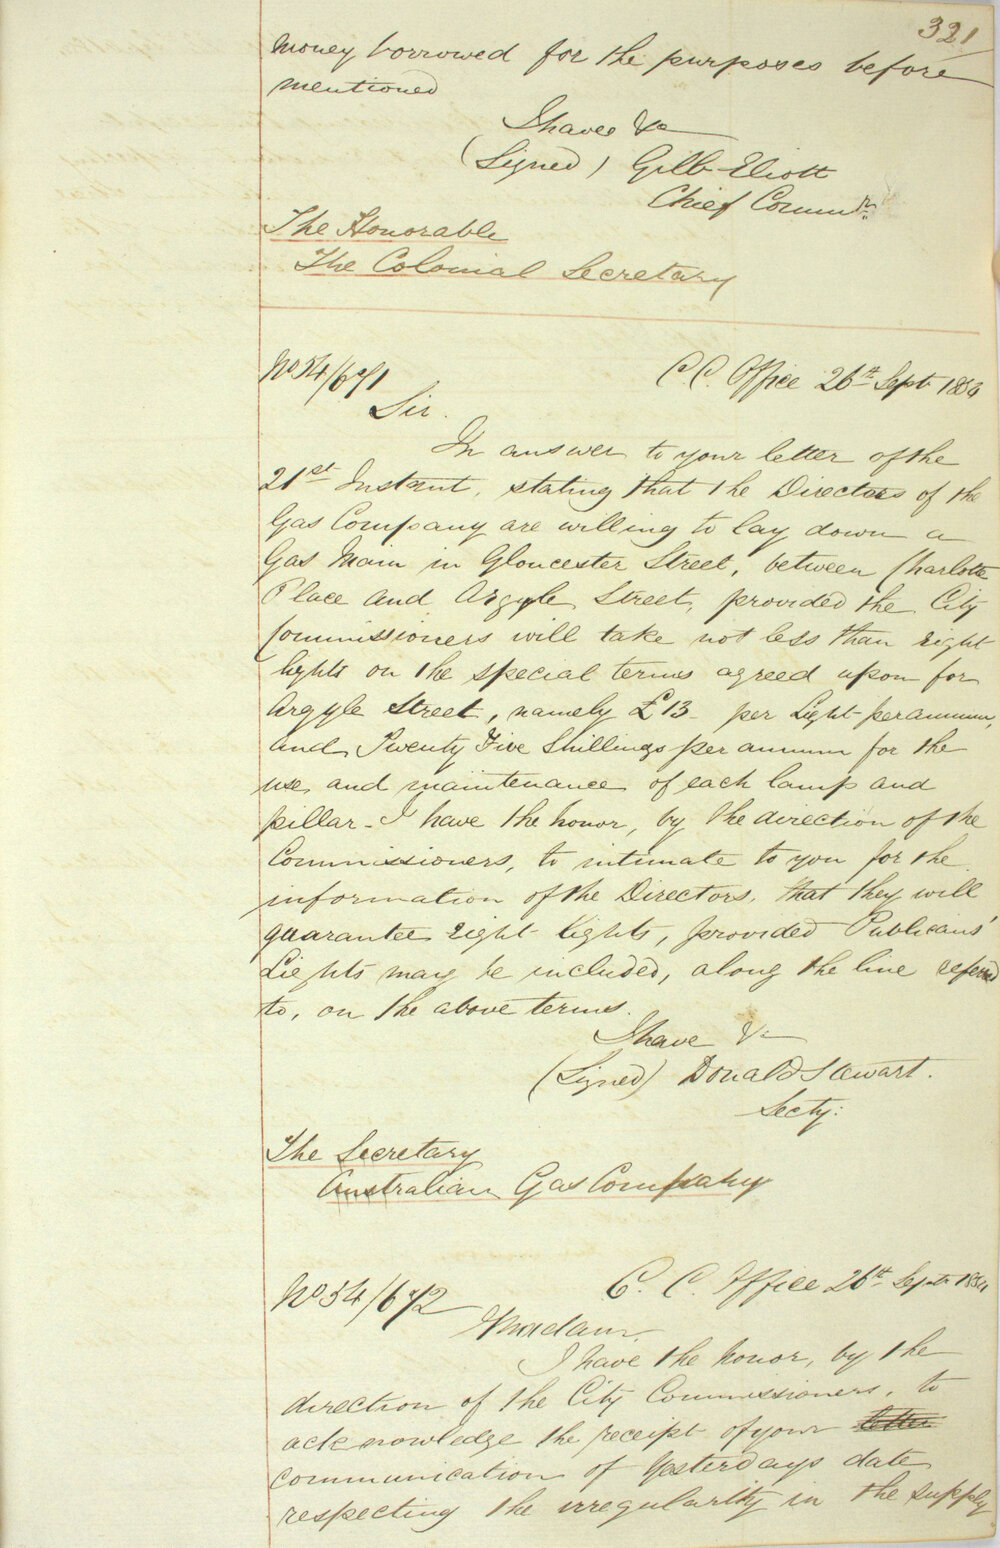 321
money borrowed for the purposes before
mentioned
I have &c
(Signed) Gilb Eliott
Chief Commr.
The Honorable
The Colonial Secretary
No 54/671
C.C. Office 26th Sept 1854
Sir.
In answer to your letter of the
21st Instant, stating that the Directors of the
Gas Company are willing to lay down a
Gas Main in Gloucester Street, between Charlotte
Place and Argyle Street, provided the City
Commissioners will take not less than eight
lights on the special terms agreed upon for
Argyle Street, namely £13 per Light per annum,
and Twenty Five Shillings per annum for the
use and maintenance of each lamp and
pillar - I have the honor, by the direction of the
Commissioners, to intimate to you for the
information of the Directors, that they will
guarantee eight lights, provided Publicans'
Lights may be included, along the line referred
to, on the above terms.
I have &c
(Signed) Donald Stewart.
Secty:
The Secretary
Australian Gas Company
No 54/672
C. C. Office 26th Sept 1854
Madam,
I have the honor, by the
direction of the City Commissioners, to
acknowledge the receipt of your letter
communication of Yesterdays date
respecting the irregularity in the supply